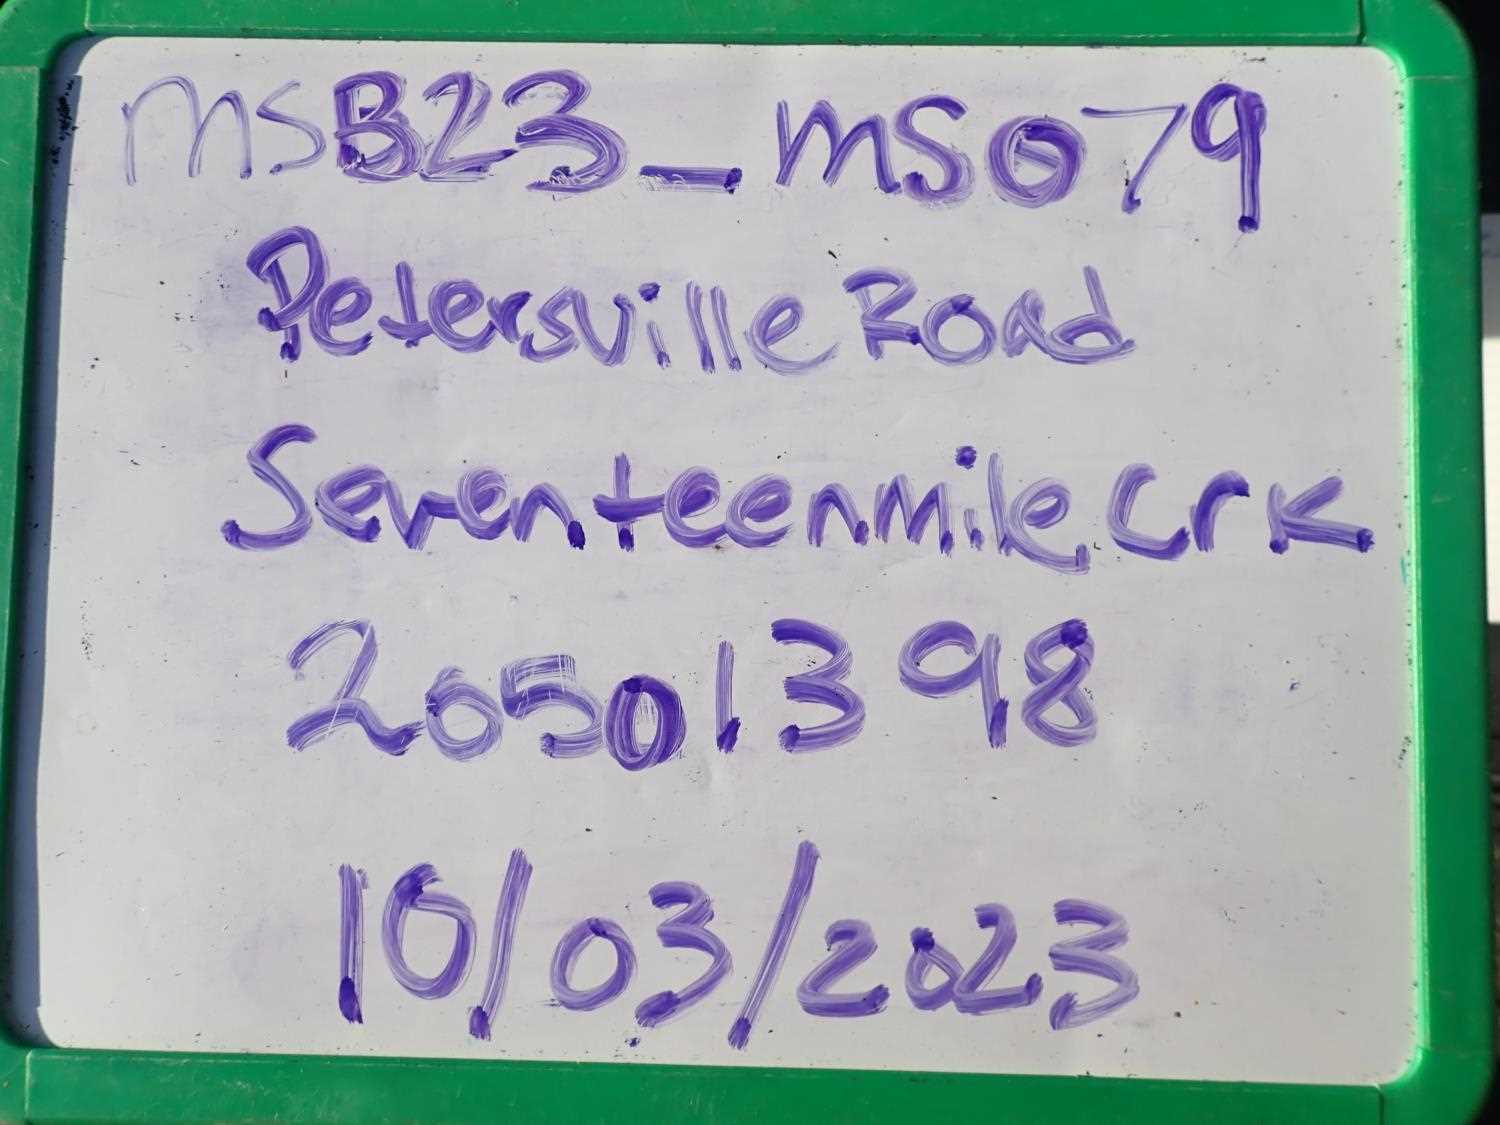 MSB23_MS079
Petersville Road
Seventeenmile Crk
20501398
10/03/2023